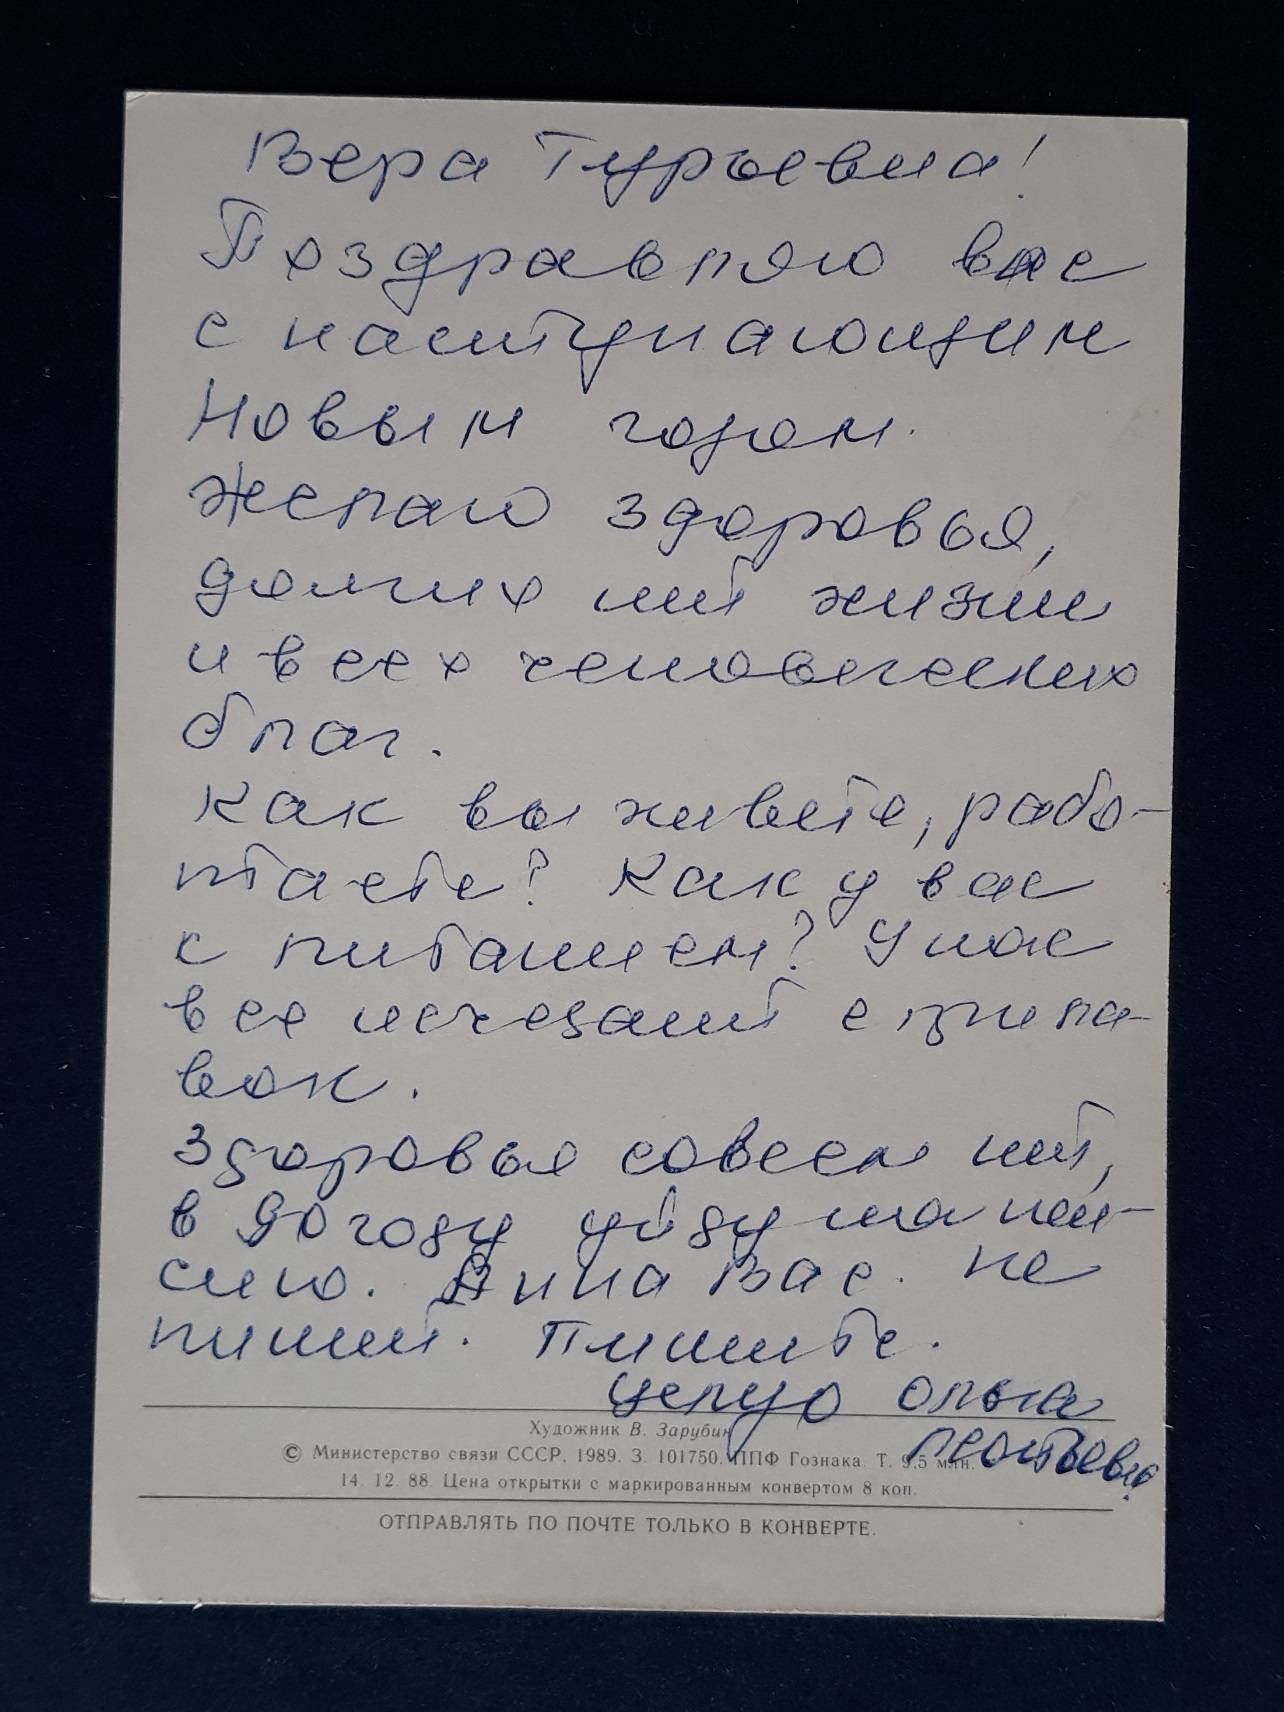 Вера Гурьевна!
Поздравляю вас
с наступающим
Новым годом.
Желаю здоровья,
долгих лет жизни
и всех человеческих
благ.
Как вы живете, рабо-
таете? Как у вас
с питанием? У нас
все исчезает с прила-
вок.
Здоровья совсем нет,
в 90 году уйду на пен-
сию. Анна Вас. не
пишет. Пишите.
Целую Ольга
Леонтьевна.
Художник В. Зарубин
© Министерство связи СССР, 1989. З. 101750. ППФ Гознака. Т. 9,5 млн.
14. 12. 88. Цена открытки с маркированным конвертом 8 коп.
ОТПРАВЛЯТЬ ПО ПОЧТЕ ТОЛЬКО В КОНВЕРТЕ.